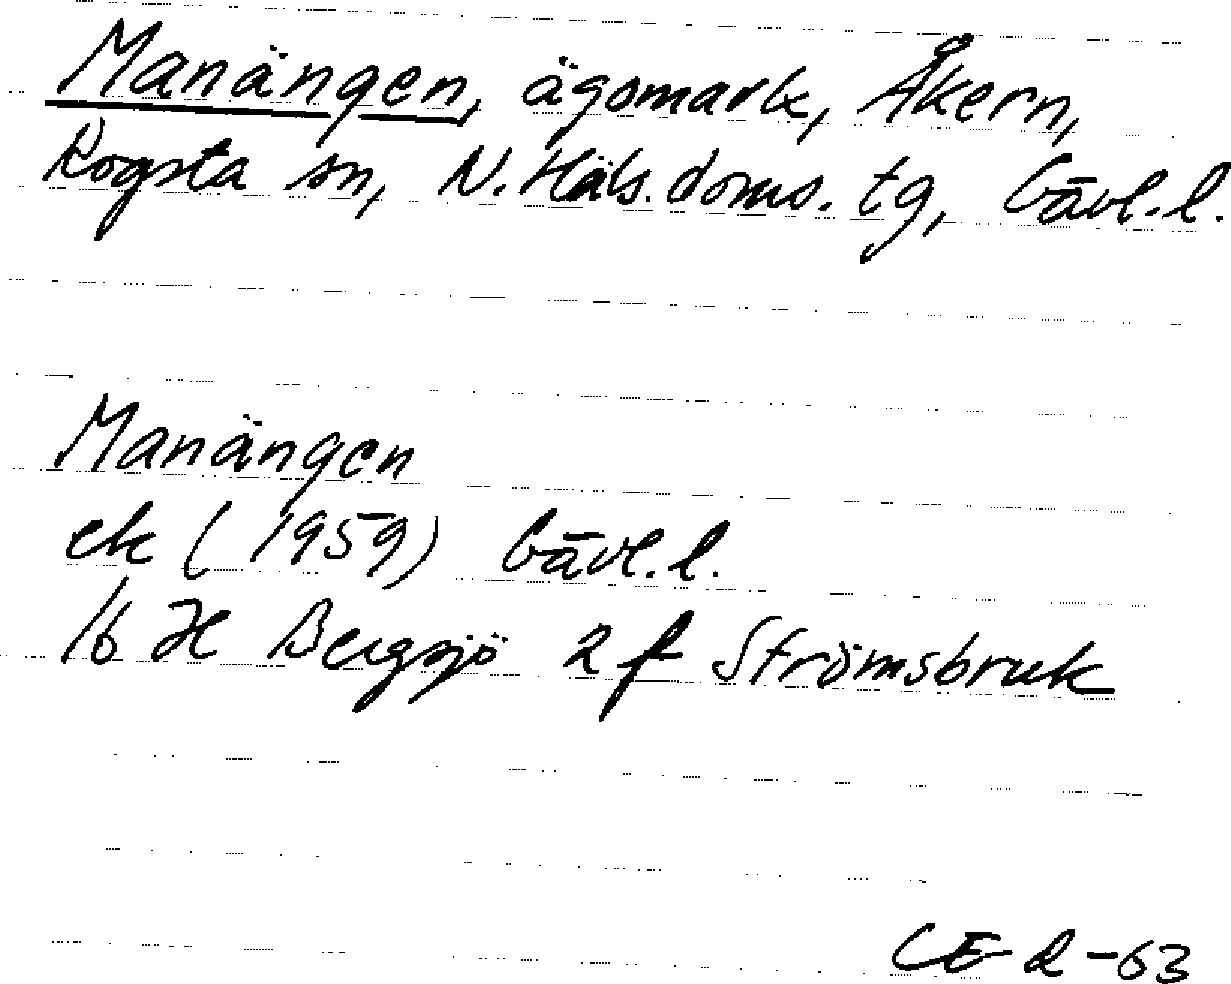 Manängen, ägomark, Åkern,
Rogsta sn, N. Häls. doms. tg, Gävl. l.
Manängen
ek (1959) Gävl. l.
16 H Bergsjö 2 f Strömsbruk
CE 2-63